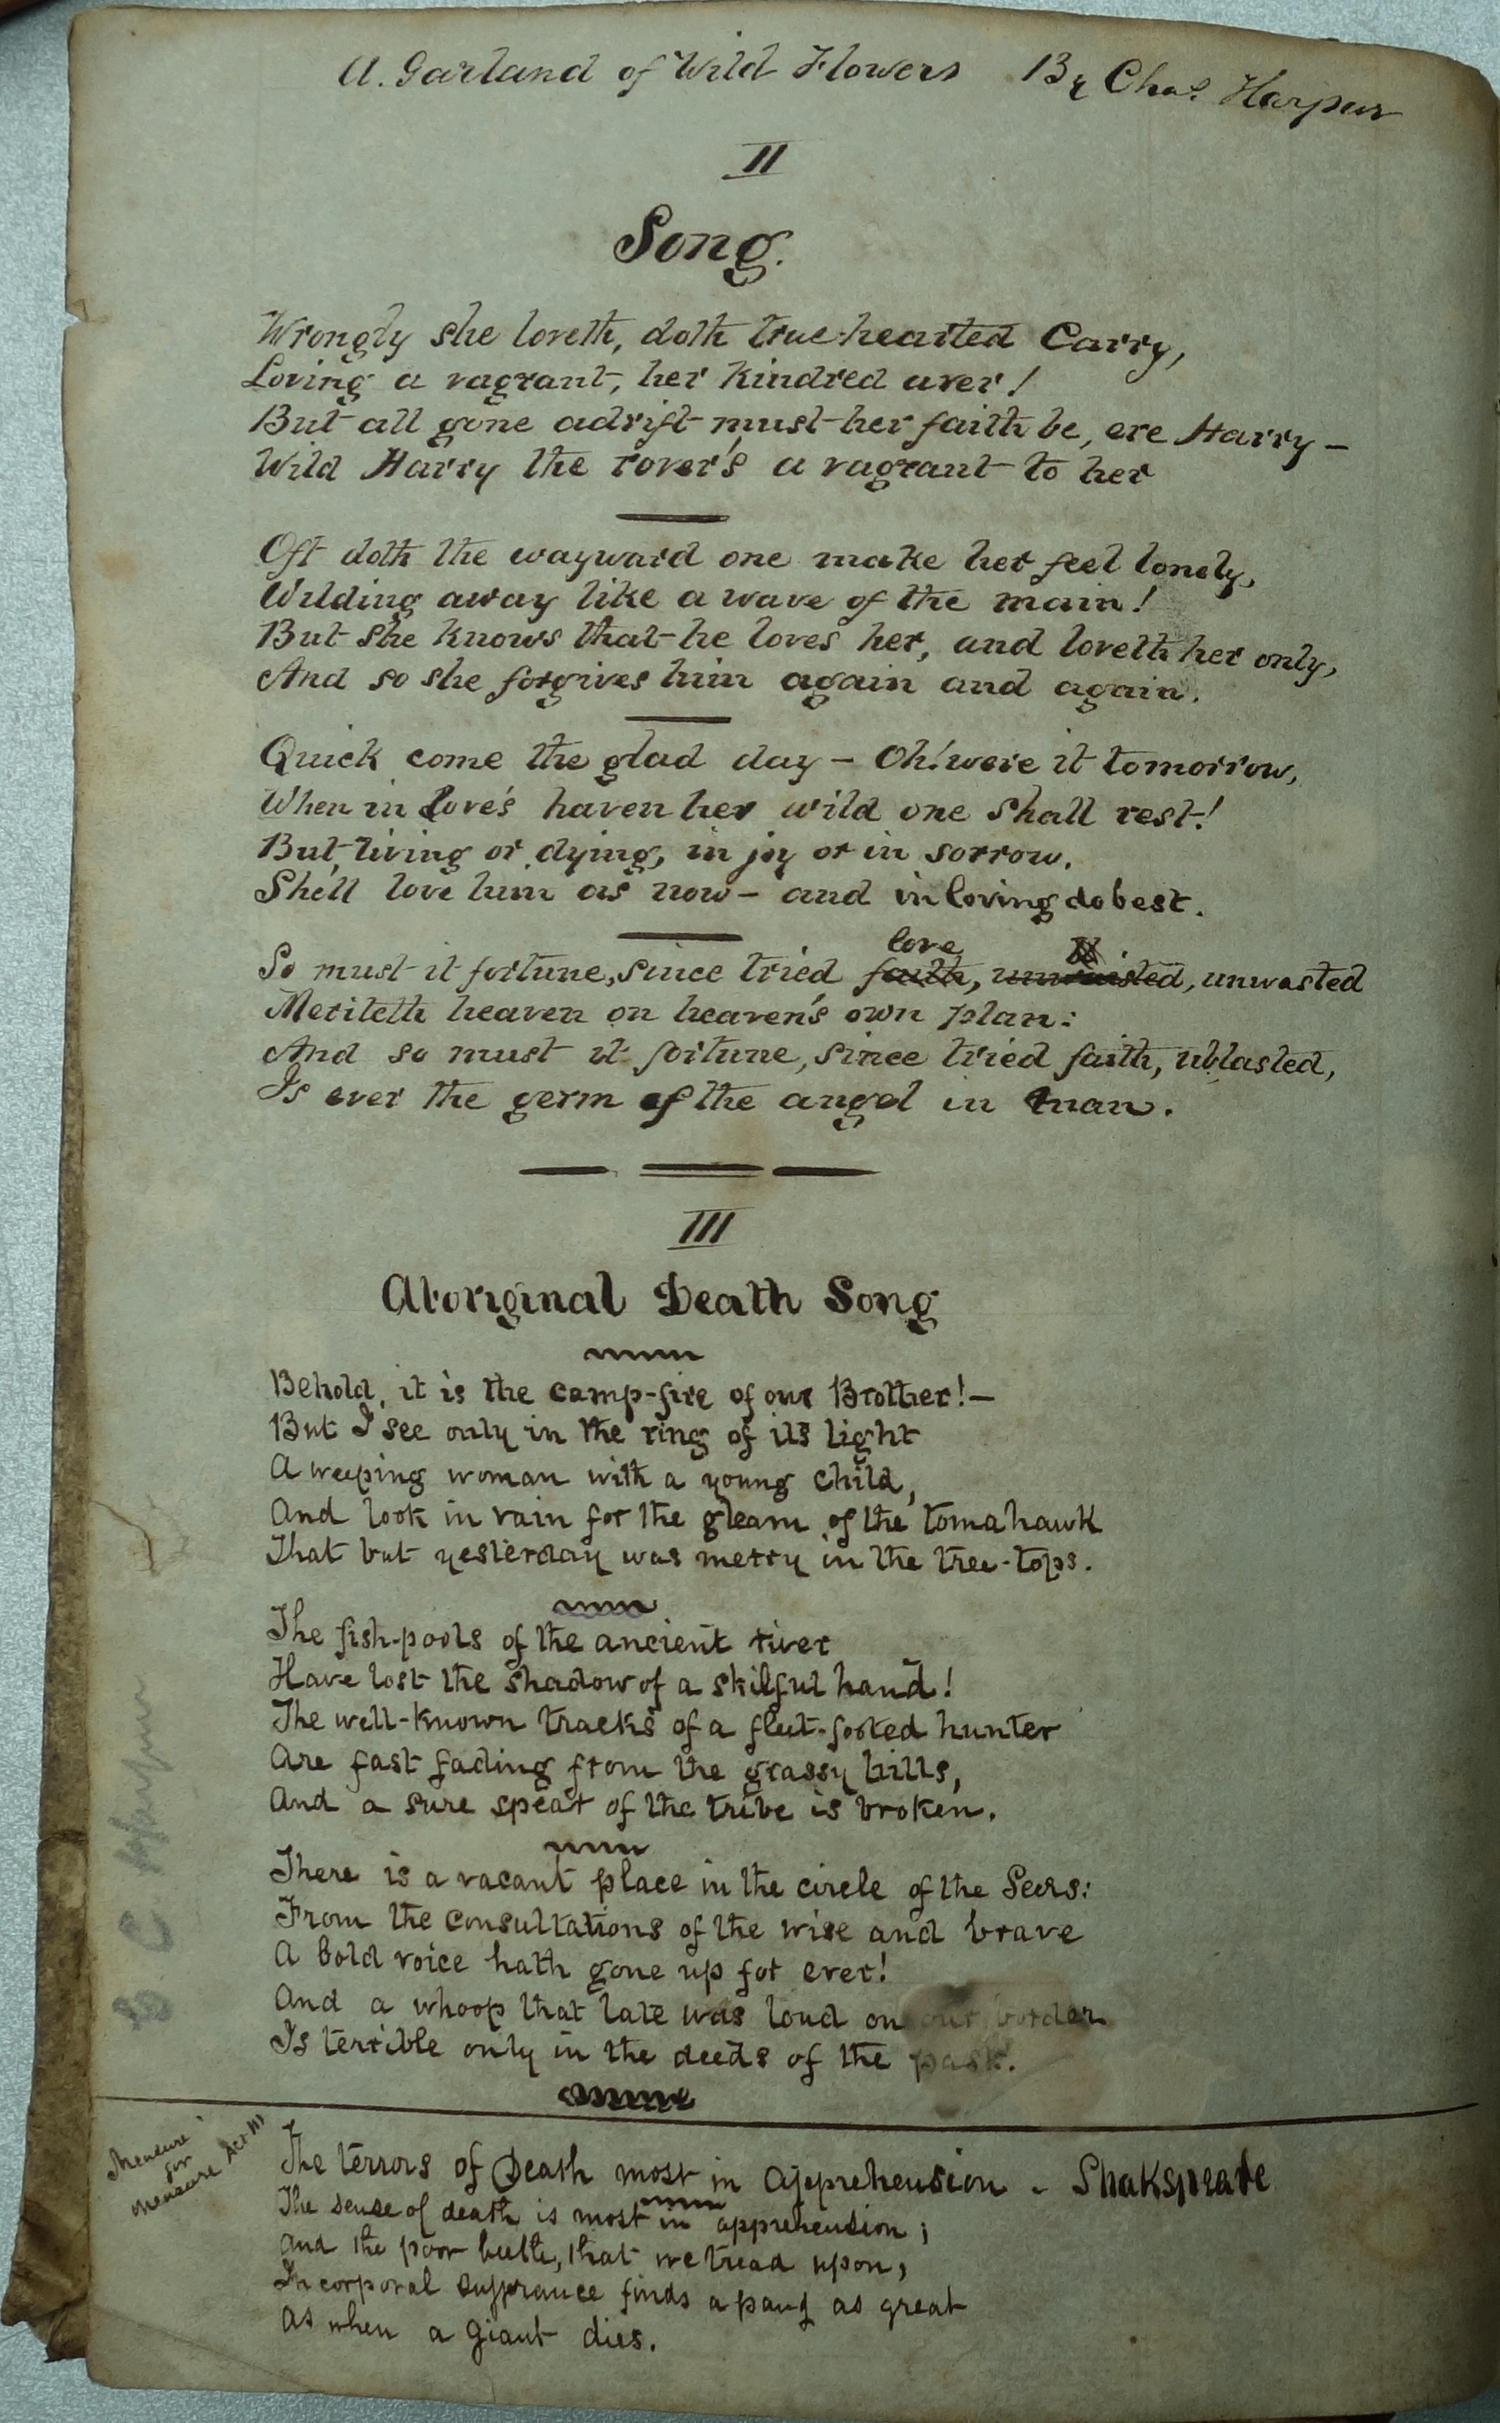 A. Garland of Wild Flowers By Chas. Harpur
II
Song.
Wrongly she loveth, doth true-hearted Carry,
Loving a vagrant, her kindred aver!
But all gone adrift must her faith be, ere Harry —
Wild Harry the rover's a vagrant to her
Oft doth the wayward one make her feel lonely,
Wilding away like a wave of the main!
But she knows that he loves her, and loveth her only,
And so she forgives him again and again.
Quick come the glad day — Oh! were it tomorrow,
When in Love's haven her wild one shall rest!
But, living or dying, in joy or in sorrow,
She'll love him as now — and in loving do best.
love
So must it fortune, since tried faith, unwasted, unwasted
Meriteth heaven on heaven's own plan:
And so must it fortune, since tried faith, ublasted,
Is ever the germ of the angel in man.
III
Aboriginal Death Song
Behold, it is the camp-fire of our Brother! —
But I see only in the ring of its light
A weeping woman with a young child,
And look in vain for the gleam of the tomahawk
That but yesterday was merry in the tree-tops.
The fish-pools of the ancient river
Have lost the shadow of a skilful hand!
The well-known tracks of a fleet-footed hunter
Are fast fading from the grassy hills,
And a sure spear of the tribe is broken.
There is a vacant place in the circle of the Seers:
From the consultations of the wise and brave
A bold voice hath gone up for ever!
And a whoop that late was loud on our border
Is terrible only in the deeds of the past.
Measure
for
Measure Act III
The terrors of Death most in apprehension - Shakspeare
The sense of death is most in apprehension;
and the poor beetle, that we tread upon,
In corporal sufferance finds a pang as great
As when a giant dies.